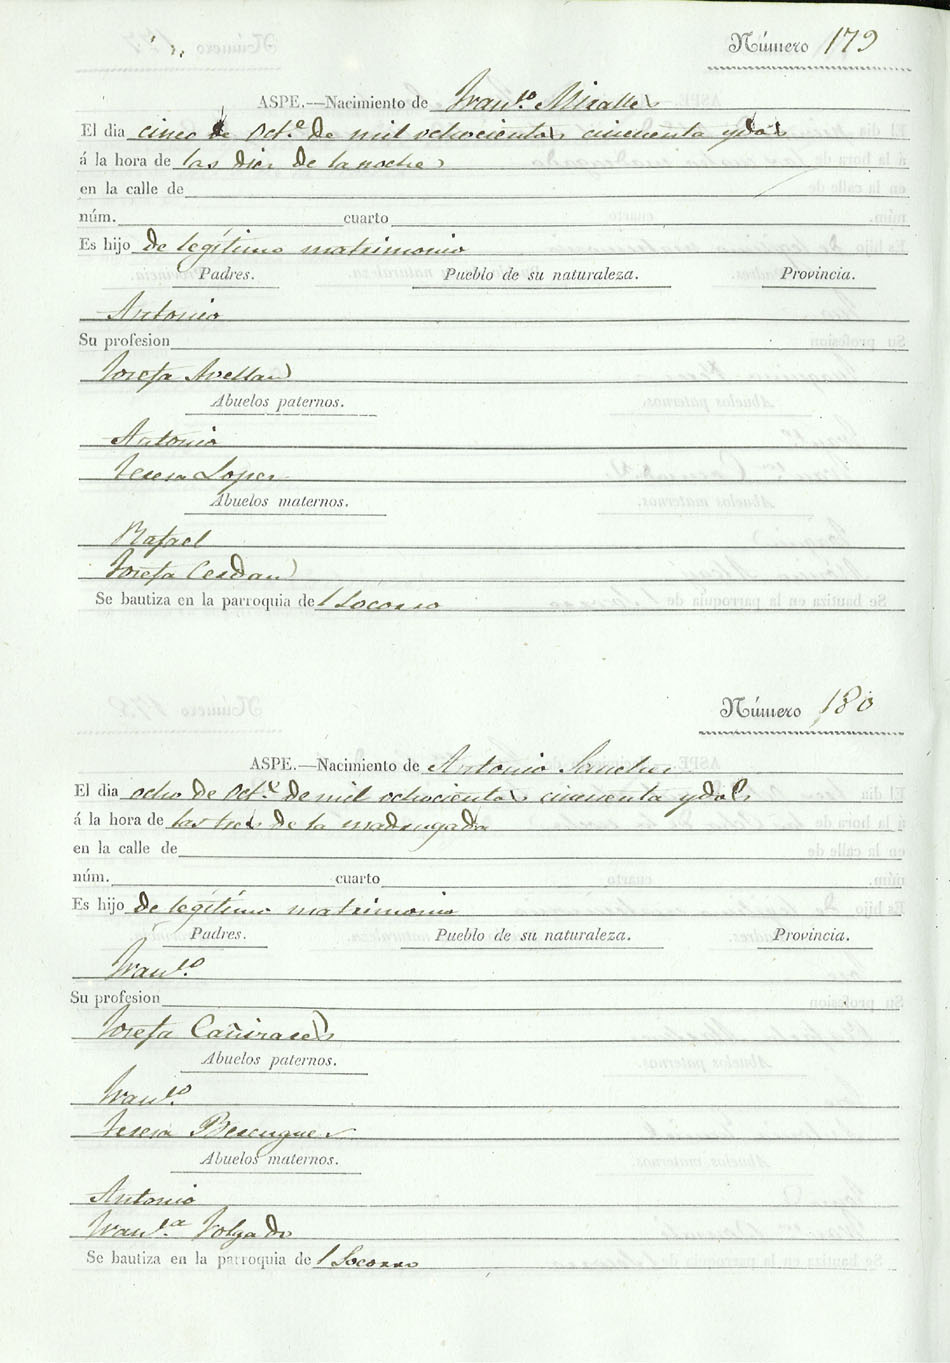 Número 179
ASPE.—Nacimiento de Fran.co Miralles
El dia cinco de Oct.e de mil ochocientos cincuenta y dos
á la hora de las diez de la noche
en la calle de
núm. cuarto
Es hijo de legítimo matrimonio
Padres. Pueblo de su naturaleza. Provincia.
Antonio
Su profesion
Josefa Avellan
Abuelos paternos.
Antonio
Teresa Lopez
Abuelos maternos.
Rafael
Josefa Cerdan
Se bautiza en la parroquia de l Socorro
Número 180
ASPE.—Nacimiento de Antonio Sanchez
El dia ocho de Oct.e de mil ochocientos cincuenta y dos
á la hora de las tres de la madrugada
en la calle de
núm. cuarto
Es hijo de legítimo matrimonio
Padres. Pueblo de su naturaleza. Provincia.
Fran.co
Su profesion
Josefa Cañizares
Abuelos paternos.
Fran.co
Teresa Berenguer
Abuelos maternos.
Antonio
Fran.ca Folgado
Se bautiza en la parroquia de l Socorro